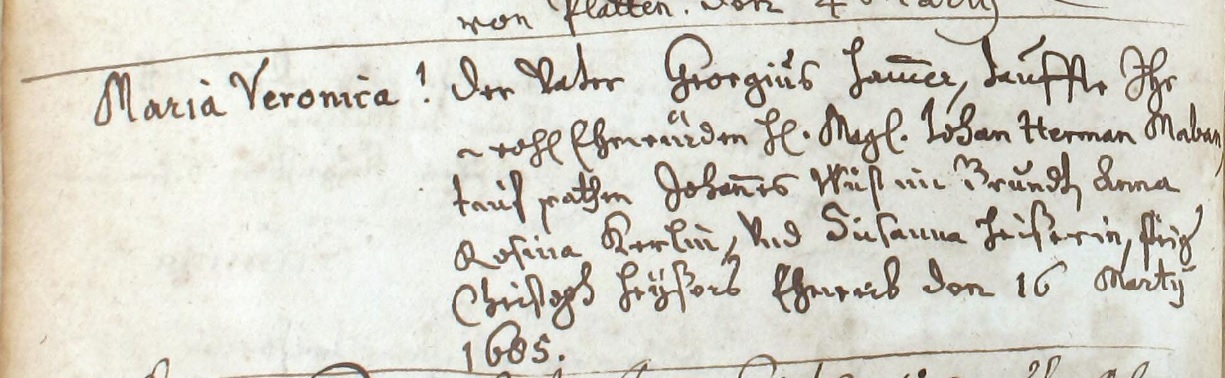 von Platten. den 4 Marty
Maria Veronica! Der Vater Georgius Ham̅er, tauffte Ihr
wohl Ehrwürden H. Magl. Johan Herman Maban,
tauf pathen Johan̅es Wüst im Grundt, Anna
Rosina Kerlin, Vnd Susanna Heiserin,
Christoph Heÿsers Eheweib den 16 Martÿ
1685.